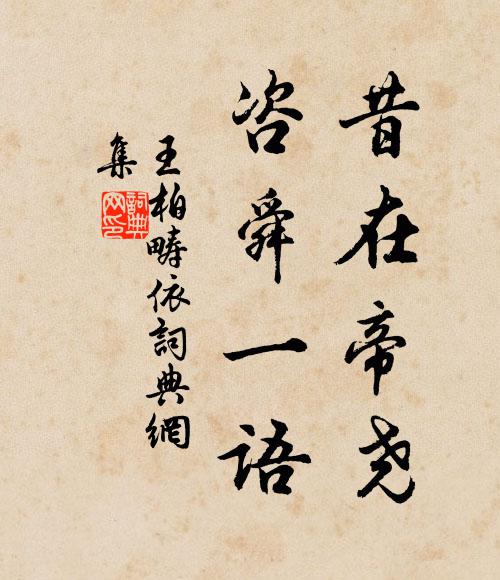 昔在帝尧
咨舜一语
王柏畴依词典網
集
詞典
网印